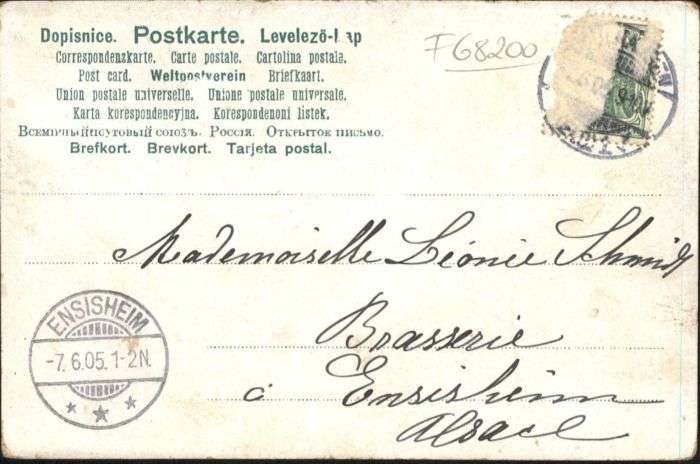 Dopisnice. Postkarte. Levelező-Lap
Correspondenzkarte. Carte postale. Cartolina postale.
Post card. Weltpostverein Briefkaart.
Union postale universelle. Unione postale universale.
Karta korespondencyjna. Korespondenoni listek.
Всемірный почтовый союзъ. Россія. Открытое письмо.
Brefkort. Brevkort. Tarjeta postal.
F 68200
Mademoiselle Léonie Schmidt
Brasserie
à Ensisheim
Alsace
ENSISHEIM
-7.6.05.1-2N.